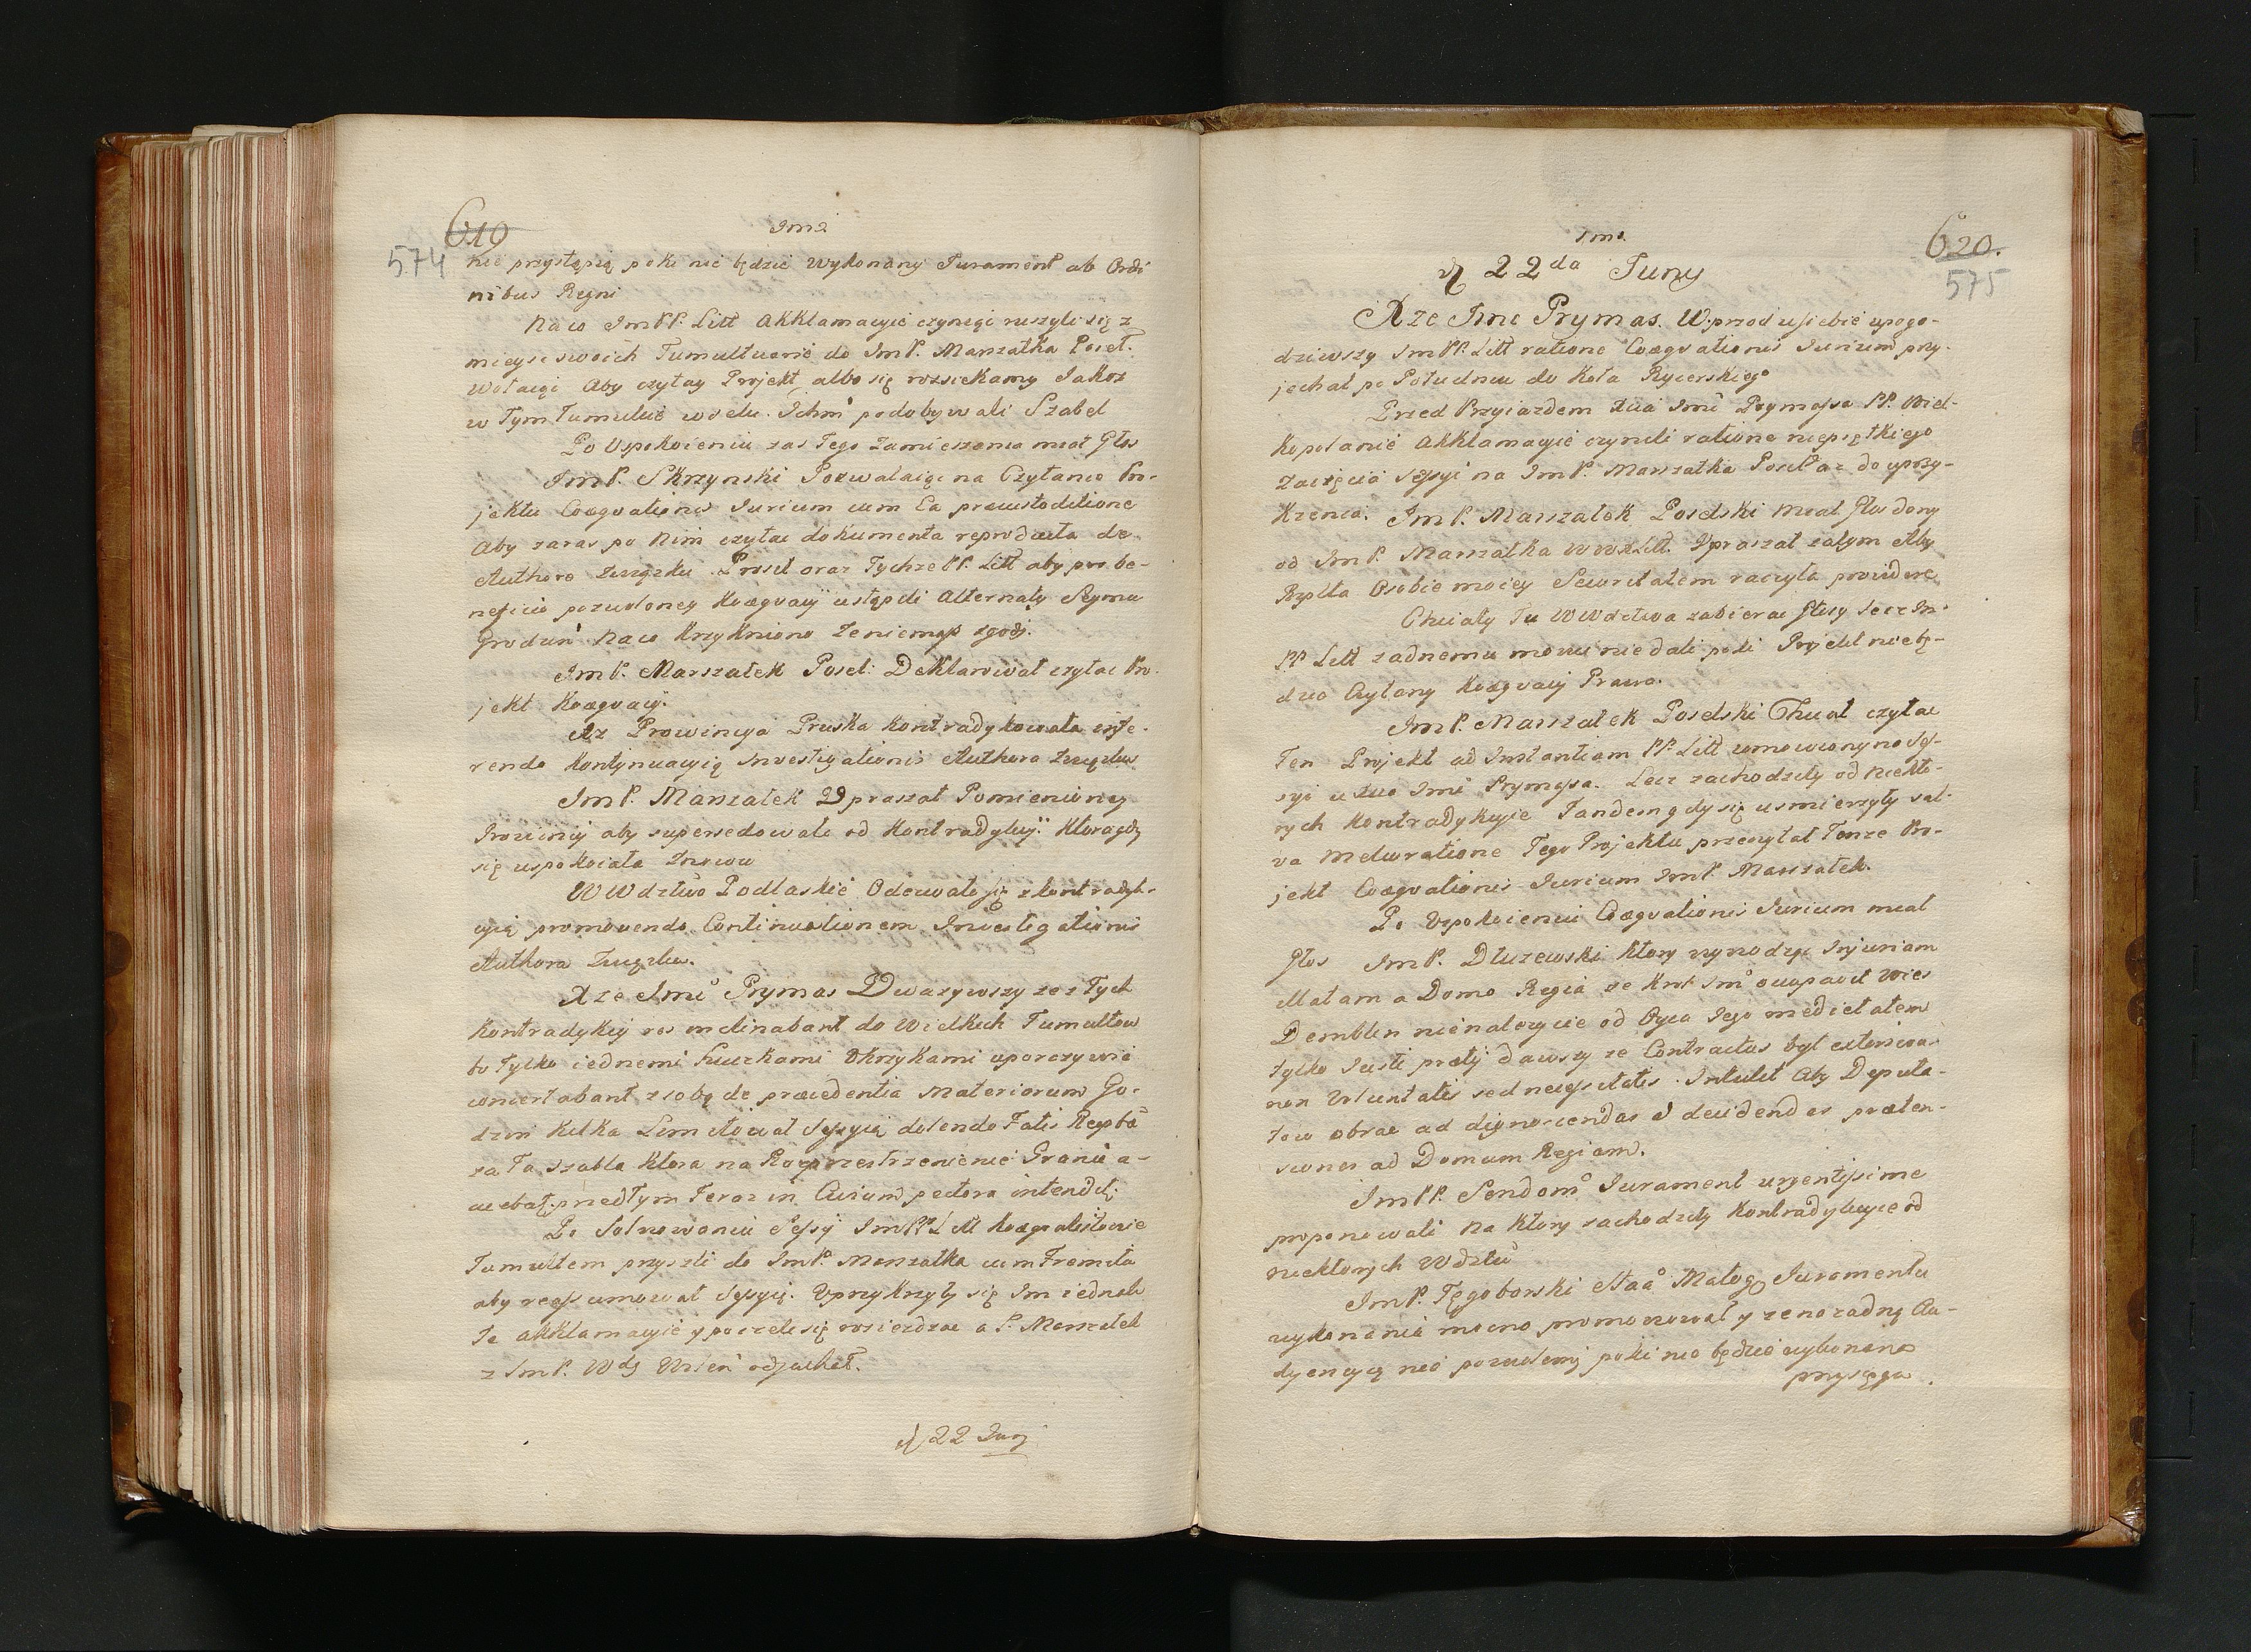 619
574
Im2
nie przystąpią poki nie będzie Wykonany Jurament ab Ordi
nibus Regni
Na co ImPP. Litt akklamacyie czyniąc ruszyli się z
mieysc swoich Tumultuarie do ImP. Marszałka Posel.
wołaiąc Aby czytay Projekt albo się rozsiekamy Jakoż
w Tym Tumulcie wielu Ichm podobywali Szabel
Po Uspokoieniu zas Tego Zamieszania miał Głos
ImP. Skrzynski Pozwalaiąc na Czytanie Pro-
jektu Coaequationis Jurium cum Ea praecustoditione
Aby zaraz po Nim czytac dokumenta reproducta de
Authore Związku. Prosił oraz Tychze PP. Litt aby pro be-
neficio pozwoloney Koaequacij ustąpili Alternaty Seymu
Grodzin Na co Krzykniono Ze niemasz zgody.
ImP. Marszałek Posel: Deklarował czytac Pro-
jekt Koaequacij.
Az Prowincya Pruska Kontradykowała infe-
rendo Kontynuacyią Investigationis Authora Związku
ImP. Marszałek Upraszał Pomienioney
Prowincij aby supersedowała od Kontradykcij. Ktora gdy
się uspokoiała Znowu
WWdztwo Podlaskie Odezwało się z kontradyk-
cyią promovendo Continuationem Investigationis
Authora Związku.
Xze Imc Prymas Uwazywszy ze z Tych
Kontradykcij res inclinabant do Wielkich Tumultow
bo Tylko iednemi huczkami Okrzykami uporczywie
concertabant z sobą de praecedentia Materiarum Go-
dzin Kilka Limitował Sessyią dolendo Fatis Reipbcae
za Ta szabla Ktora na Rozprzestrzenienie Granic a-
cuebat. przedtym Teraz in Civium pectora intendit.
Po Solwowaniu Sessyi ImPP Litt Koaequatistowie
Tumultem przyszli do ImP. Marszałka cum Fremitu
aby reassumował Sessyią. Uprzykrzyły się Im iednak
te akklamacyie y poczeli się rozieżdzac a P. Marszałek
z ImP. Wdą Wilen odjechał.
d 22 Junj
Im2
620.
575
d 22da Juny
Xze Imc Prymas. Wprzod u siebie upogo-
dziwszy ImPP. Litt ratione Coaequationis Jurium przy-
jechał po Południu do Koła Rycerskiego
Przed Przyiazdem Xcia Imc Prymassa PP. Wiel-
kopolanie Akklamacyie czynili ratione nieprętkiego
Zaczęcia Sessyi na ImP. Marszałka Posel az do uprzy-
krzenia. ImP. Marszałek Poselski Miał Głos dany
od ImP. Marszałka WWXLitt. Upraszał zatym Aby
Rzplta Osobie moiey Securitatem raczyła providere
Chciały Tu WWdztwa zabierac Głosy lecz Im
PP Litt zadnemu mowic nie dali poki Projekt nie bę-
dzie Czytany Koaequacij Prawa.
ImP. Marszałek Poselski Chciał czytac
Ten Projekt ad Instantiam PP. Litt umowiony na Ses-
syi u Xcia Imc Prymassa. Lecz zachodziły od niekto-
rych Kontradykcyie Tandem gdy się usmierzyły sal-
va Melioratione Tego Projektu przeczytał Tenze Pro-
jekt Coaequationis Jurium ImP. Marszałek.
Po Uspokoieniu Coaequationis Jurium miał
Głos ImP. Dłuzewski Ktory wywodząc Injuriam
Illatam a Domo Regia ze Krol Im occupavit Wies
Demblin nienalezycie od Oyca Jego medietatem
tylko Justi pretij dawszy ze Contractus był extorsivae
non Voluntatis sed necessitatis. Intulit Aby Deputa-
tow obrac ad dignoscendas et decidendas praeten-
siones ad Domum Regiam.
ImPP. Sendom Jurament urgentissime
proponowali Na Ktory zachodziły Kontradykcyie od
niektorych Wdztw
ImP. Tęgoborski Staa Małog Juramentu
wykonania mocno promowował y ze na zadną Au-
dyencyą nie pozwolemy poki nie będzie wykonana
przysięga.